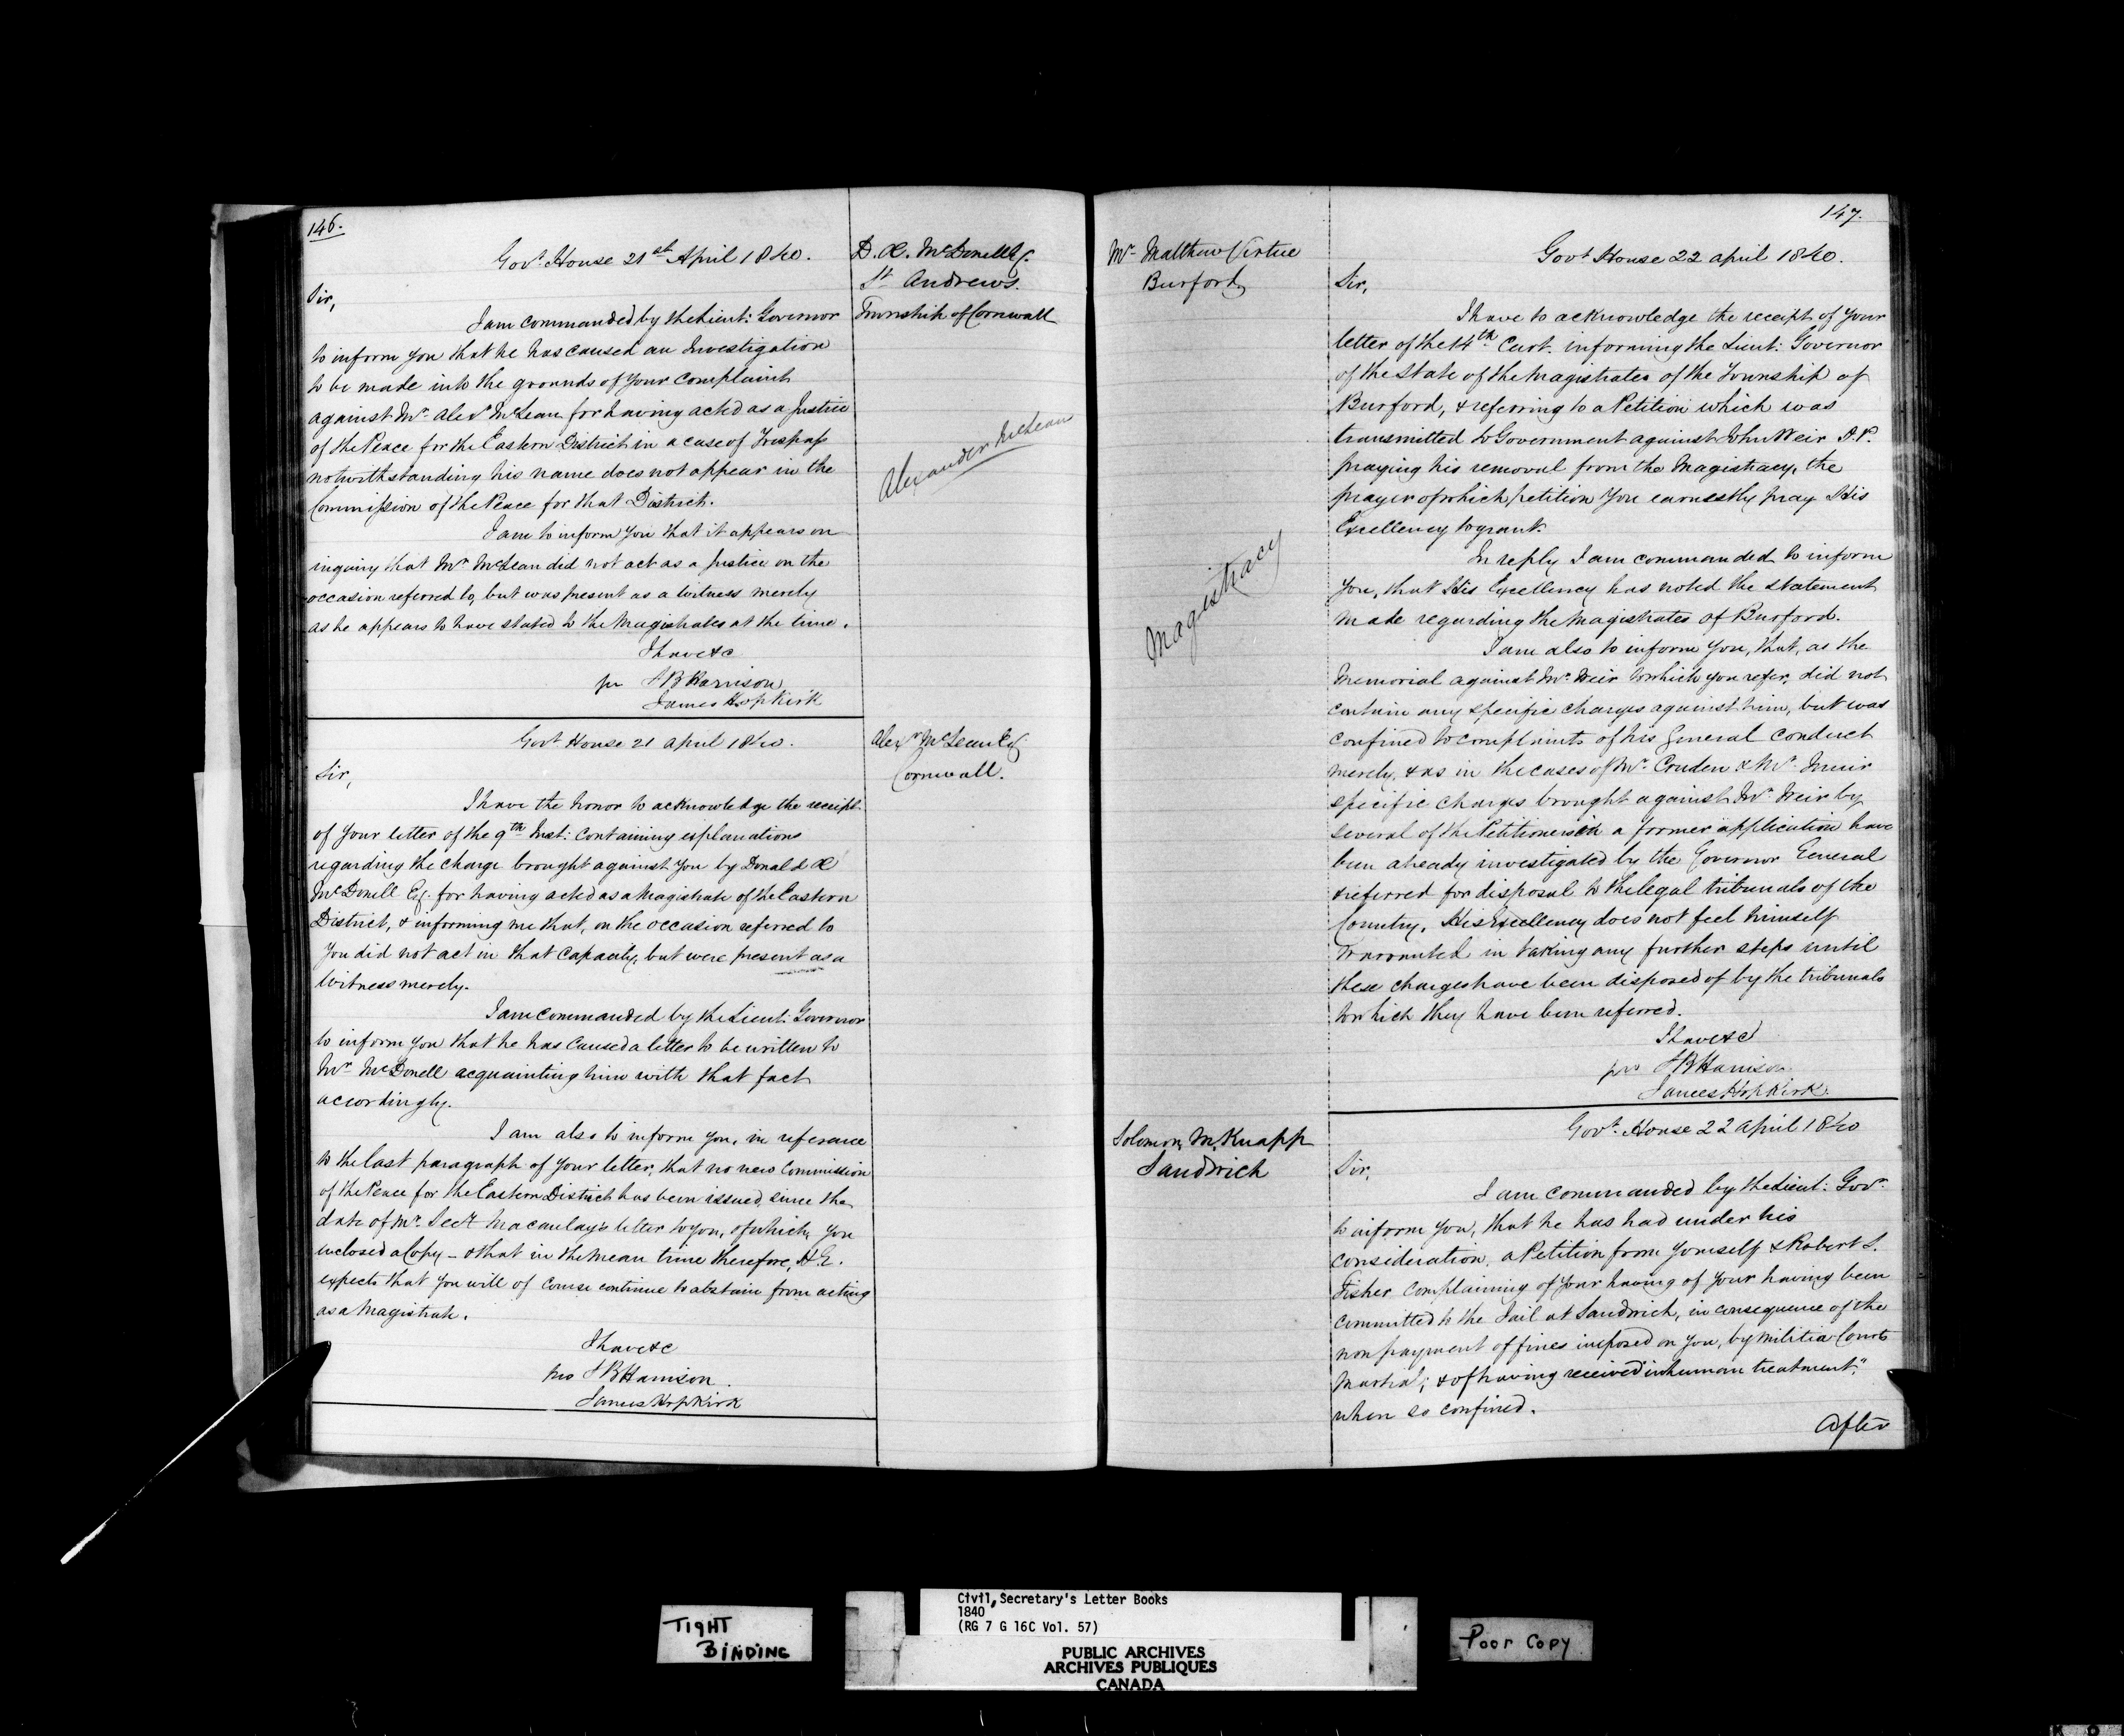 146.
Govt. House 21st April 1840.
D. Æ. McDonell Esq.
St Andrews.
Township of Cornwall
Sir,
I am commanded by the Lieut: Governor
to inform you that he has caused an Investigation
to be made into the grounds of your complaint
against Mr. Alexr McLean for having acted as a Justice
of the Peace for the Eastern District in a case of Trespass
notwithstanding his name does not appear in the
Commission of the Peace for that District.
Alexander McLean
I am to inform you that it appears on
inquiry that Mr. McLean did not act as a Justice on the
occasion referred to, but was present as a Witness merely
as he appears to have stated to the Magistrates at the time.
I have &c
pr S B Harrison
James Hopkirk
Govt House 21 April 1840.
Alexr McLean Esq
Cornwall.
Sir,
I have the honor to acknowledge the receipt
of your letter of the 9th Inst: containing explanations
regarding the charge brought against you by Donald Æ
McDonell Esq. for having acted as a Magistrate of the Eastern
District, & informing me that, on the occasion referred to
you did not act in that Capacity, but were present as a
Witness merely.
I am commanded by the Lieut: Governor
to inform you that he has caused a letter to be written to
Mr McDonell acquainting him with that fact
accordingly.
I am also to inform you, in reference
to the last paragraph of your letter, that no new Commission
of the Peace for the Eastern District has been issued, since the
date of Mr. Secy Macaulay's letter to you, of which you
inclosed a Copy – & that in the mean time therefore, H.E.
expects that you will of course continue to abstain from acting
as a Magistrate.
I have &c
pro S B Harrison.
James Hopkirk
147.
Mr. Matthew Virtue
Burford
Govt House 22 April 1840.
Sir,
I have to acknowledge the receipt of your
letter of the 14th Curt. informing the Lieut: Governor
of the State of the Magistrates of the Township of
Burford, & referring to a Petition which was
transmitted to Government against John Weir J.P.
praying his removal from the Magistracy, the
prayer of which petition you earnestly pray His
Excellency to grant.
Magistracy
In reply I am commanded to inform
you, that His Excellency has noted the statement
made regarding the Magistrates of Burford.
I am also to inform you, that, as the
Memorial against Mr. Weir to which you refer, did not
contain any specific charges against him, but was
confined to complaints of his general conduct
merely, & as in the cases of Mr. Cruden & Mr. Muir
specific charges brought against Mr. Weir by
several of the Petitioners in a former application have
been already investigated by the Governor General
& referred for disposal to the legal tribunals of the
Country, His Excellency does not feel himself
warranted in taking any further steps until
these charges have been disposed of by the tribunals
to which they have been referred.
I have &c
pro S B Harrison
James Hopkirk.
Solomon M. Knapp
Sandwich
Govt. House 22 April 1840
Sir,
I am commanded by the Lieut: Govr.
to inform you, that he has had under his
consideration, a Petition from yourself & Robert S.
Fisher complaining of your having of your having been
committed to the Jail at Sandwich, in consequence of the
non payment of fines imposed on you, by Militia Courts
Martial; & of having received "inhuman treatment",
when so confined.
After
TIGHT
BINDING
Civil Secretary's Letter Books
1840
(RG 7 G 16C Vol. 57)
PUBLIC ARCHIVES
ARCHIVES PUBLIQUES
CANADA
Poor Copy